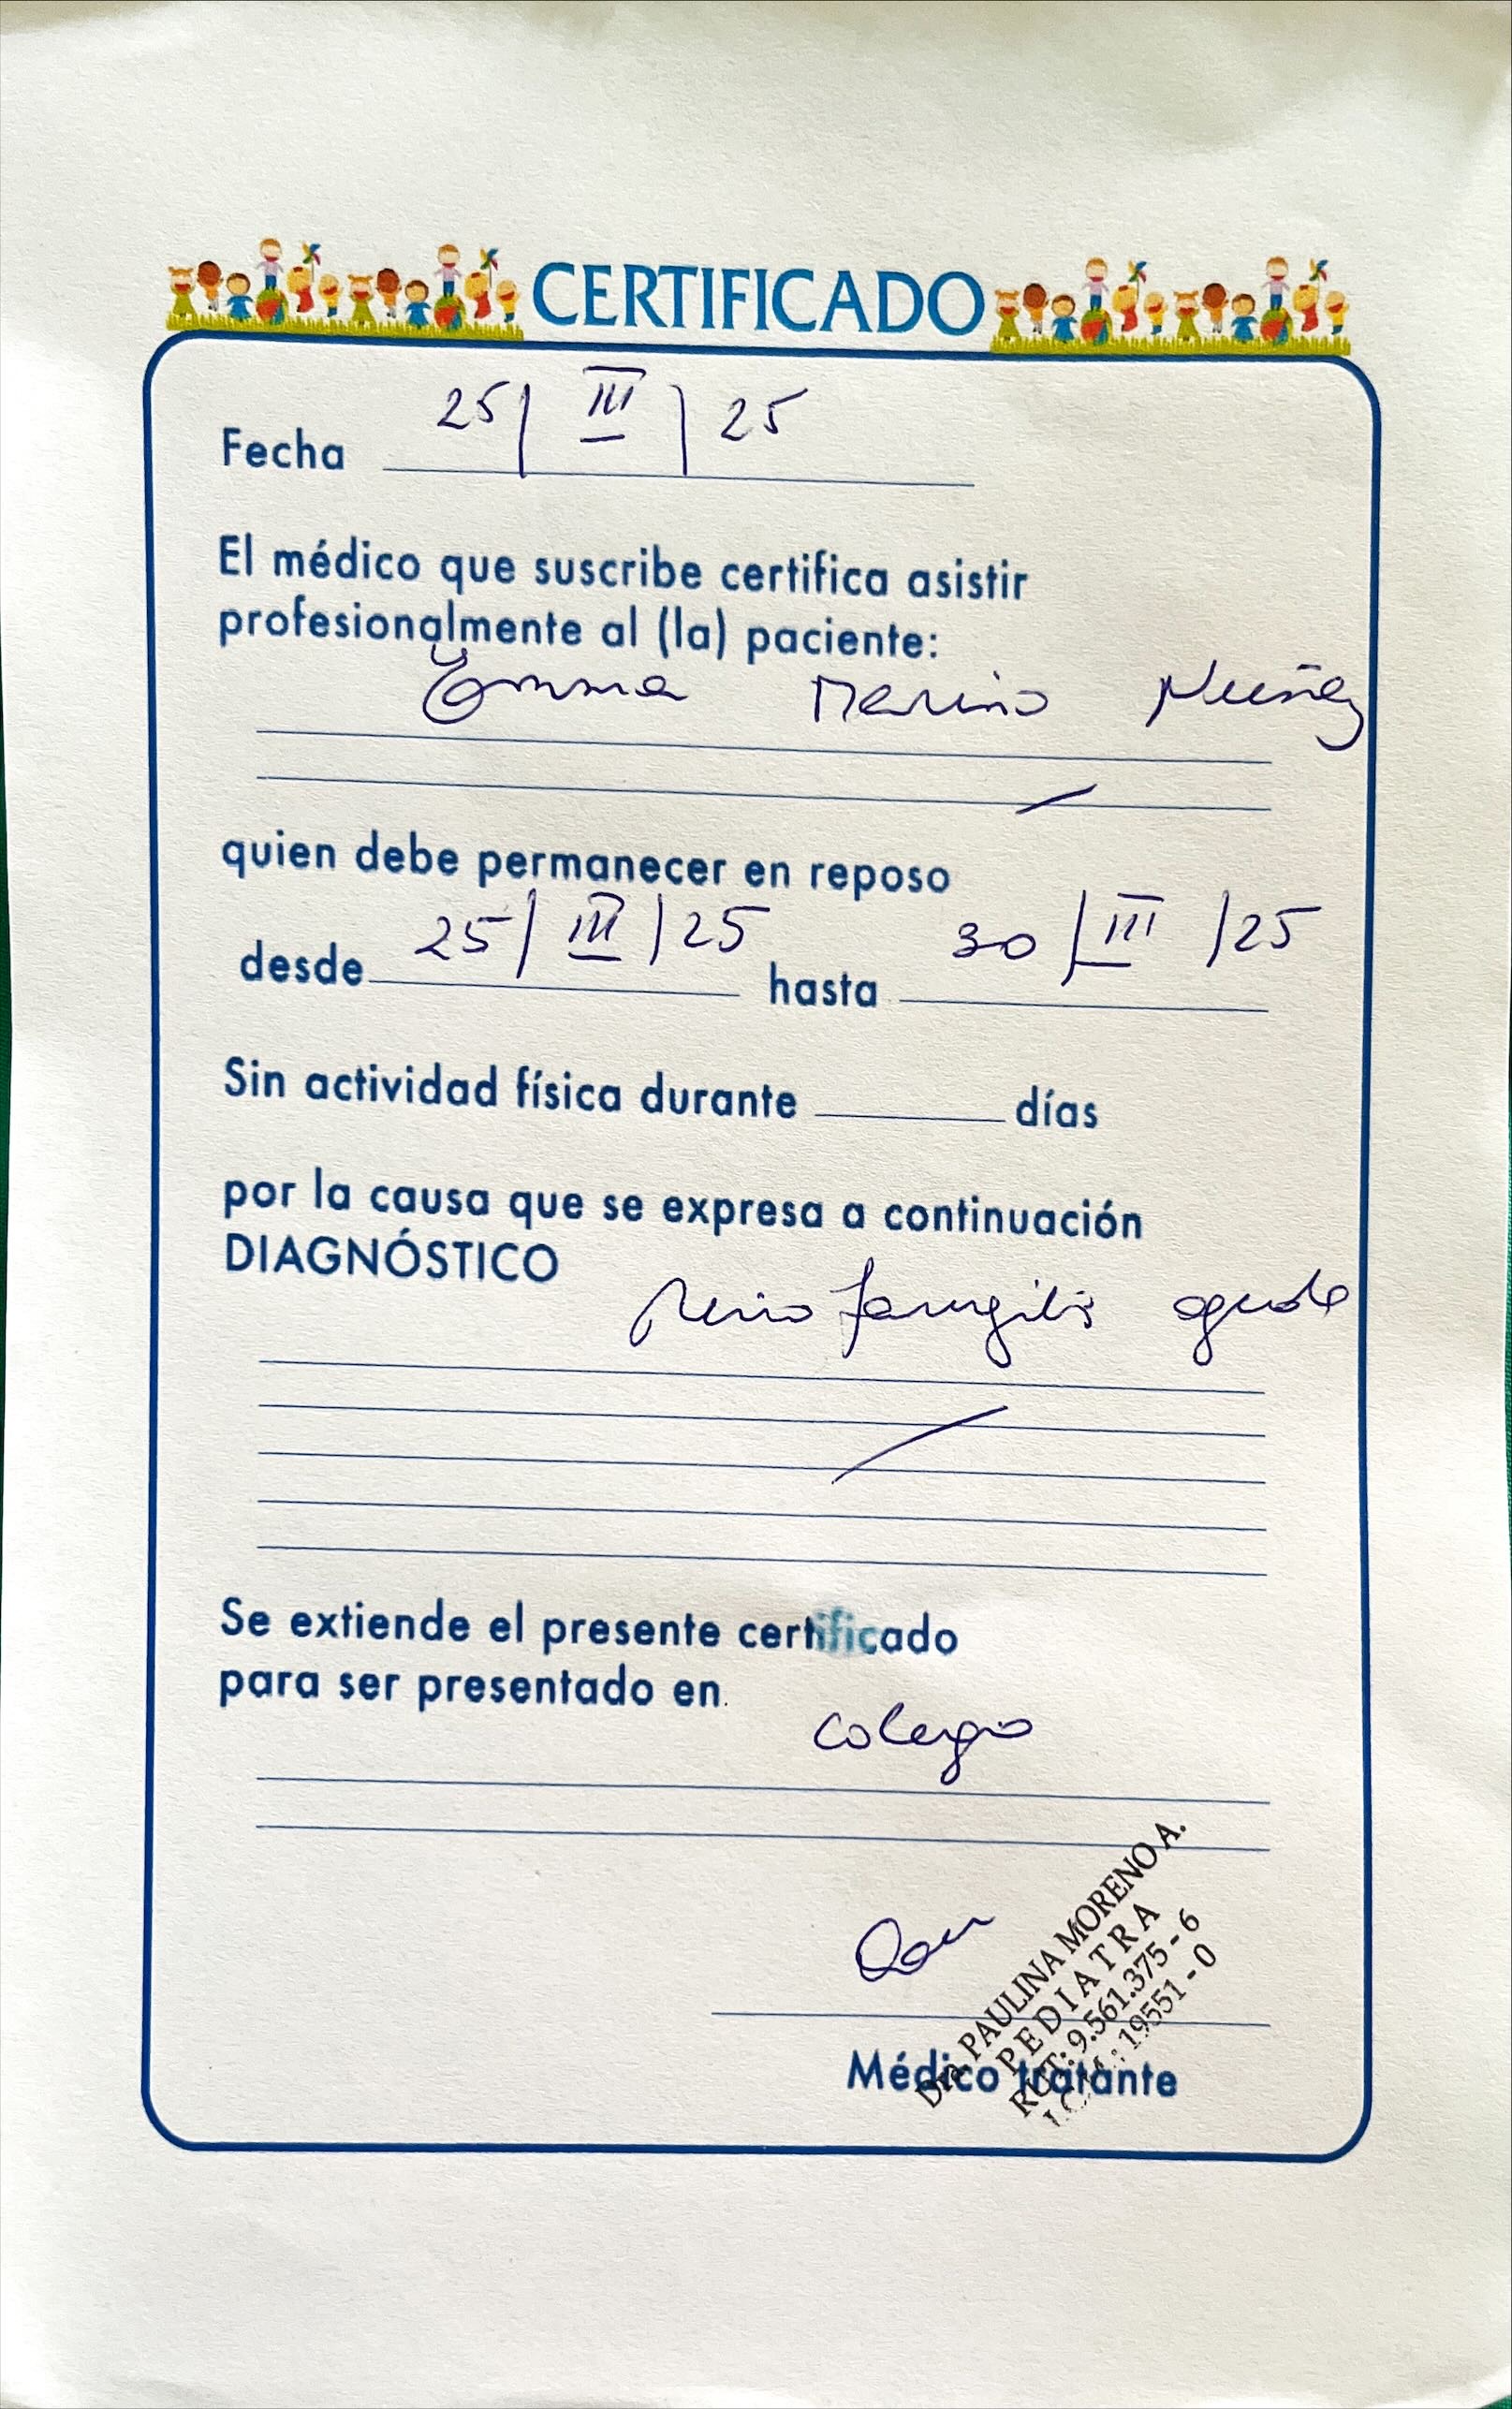 CERTIFICADO
Fecha 25/III/25
El médico que suscribe certifica asistir
profesionalmente al (la) paciente:
Emma Merino Nuñez
quien debe permanecer en reposo
desde 25/III/25 hasta 30/III/25
Sin actividad física durante ______ días
por la causa que se expresa a continuación
DIAGNÓSTICO
Rinofaringitis aguda
Se extiende el presente certificado
para ser presentado en
colegio
Dra. PAULINA MORENO A.
PEDIATRA
RUT: 9.561.375-6
19551-0
Médico tratante